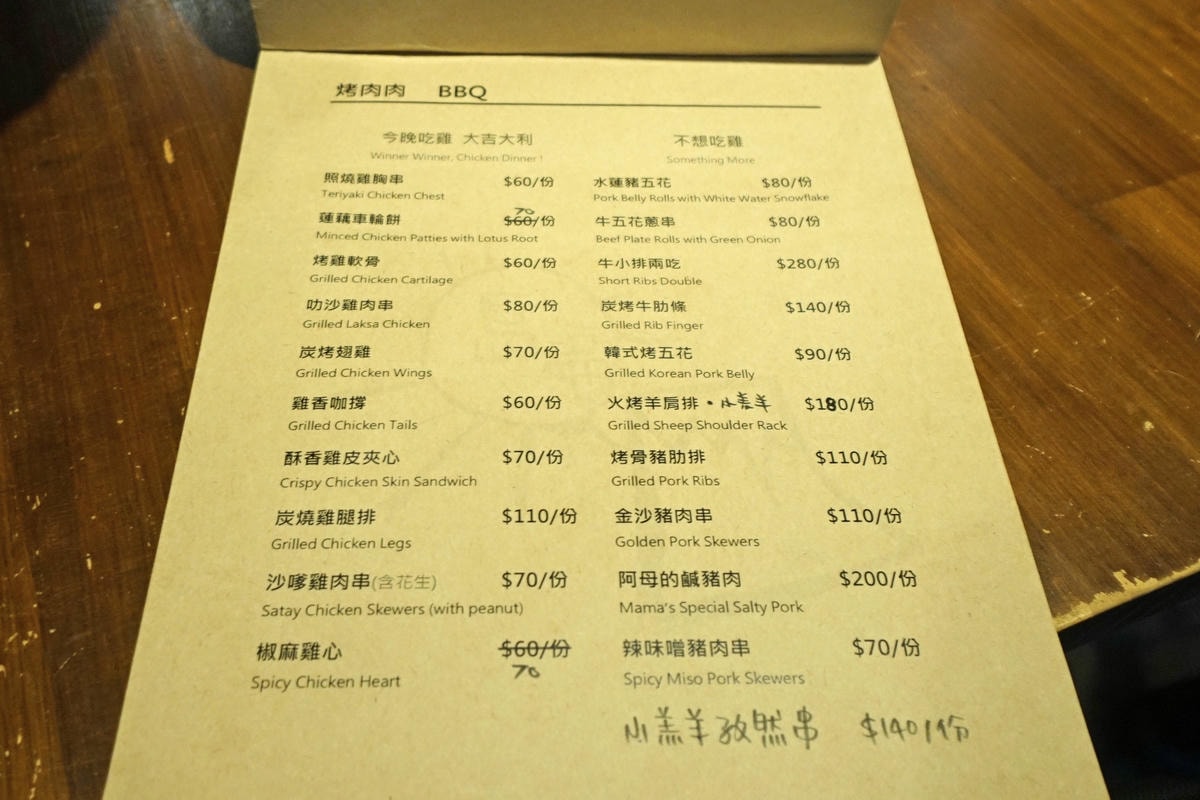 烤肉肉 BBQ
今晚吃雞 大吉大利
Winner Winner, Chicken Dinner !
照燒雞胸串 $60/份
Teriyaki Chicken Chest
70
蓮藕車輪餅 $60/份
Minced Chicken Patties with Lotus Root
烤雞軟骨 $60/份
Grilled Chicken Cartilage
叻沙雞肉串 $80/份
Grilled Laksa Chicken
炭烤翅雞 $70/份
Grilled Chicken Wings
雞香咖撐 $60/份
Grilled Chicken Tails
酥香雞皮夾心 $70/份
Crispy Chicken Skin Sandwich
炭燒雞腿排 $110/份
Grilled Chicken Legs
沙嗲雞肉串(含花生) $70/份
Satay Chicken Skewers (with peanut)
椒麻雞心 $60/份
70
Spicy Chicken Heart
不想吃雞
Something More
水蓮豬五花 $80/份
Pork Belly Rolls with White Water Snowflake
牛五花蔥串 $80/份
Beef Plate Rolls with Green Onion
牛小排兩吃 $280/份
Short Ribs Double
炭烤牛肋條 $140/份
Grilled Rib Finger
韓式烤五花 $90/份
Grilled Korean Pork Belly
火烤羊肩排・小羔羊 $180/份
Grilled Sheep Shoulder Rack
烤骨豬肋排 $110/份
Grilled Pork Ribs
金沙豬肉串 $110/份
Golden Pork Skewers
阿母的鹹豬肉 $200/份
Mama's Special Salty Pork
辣味噌豬肉串 $70/份
Spicy Miso Pork Skewers
小羔羊孜然串 $140/份